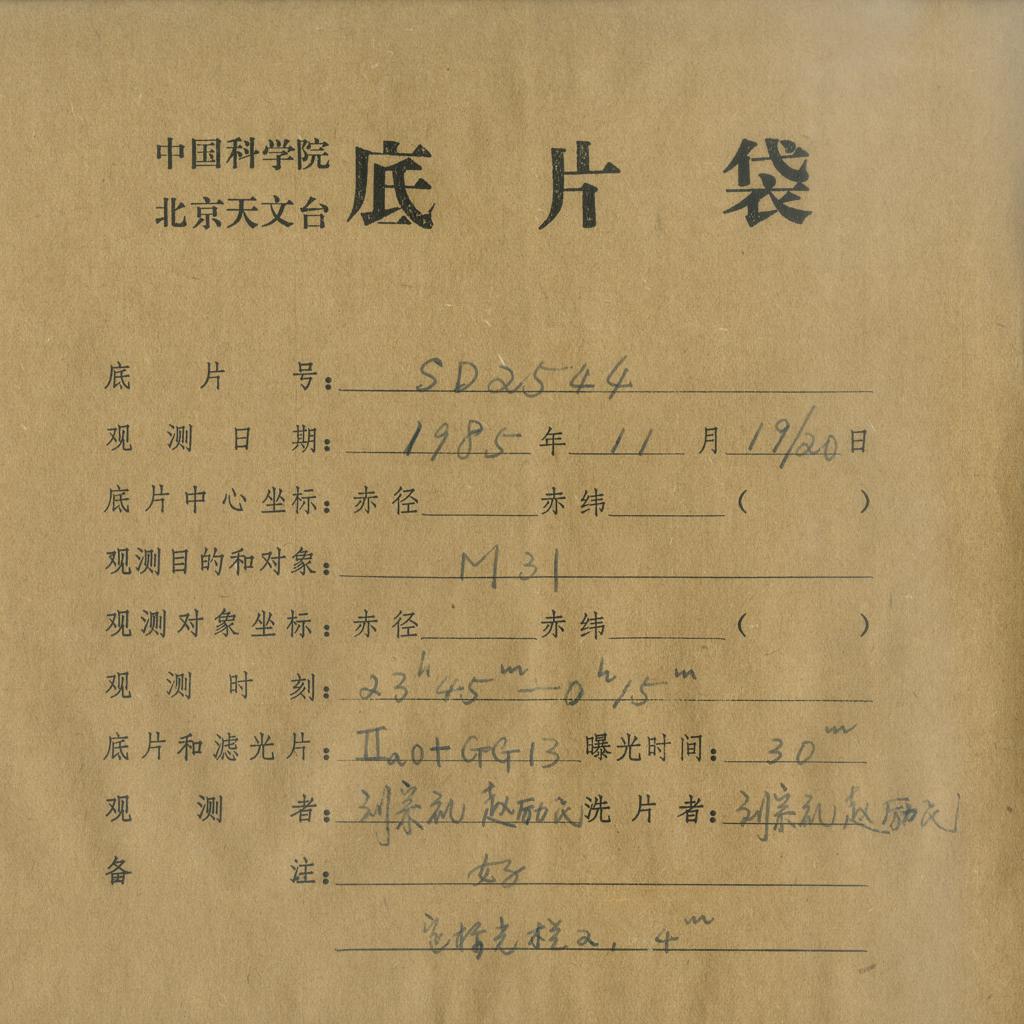 中国科学院
北京天文台 底片袋
底片号: SD2544
观测日期: 1985年 11月 19/20日
底片中心坐标: 赤径 赤纬 ( )
观测目的和对象: M31
观测对象坐标: 赤径 赤纬 ( )
观测时刻: 23h45m—0h15m
底片和滤光片: IIaO+GG13 曝光时间: 30m
观测者: 刘宗礼 赵励民 洗片者: 刘宗礼 赵励民
备注: 好
定标光栏2, 4m